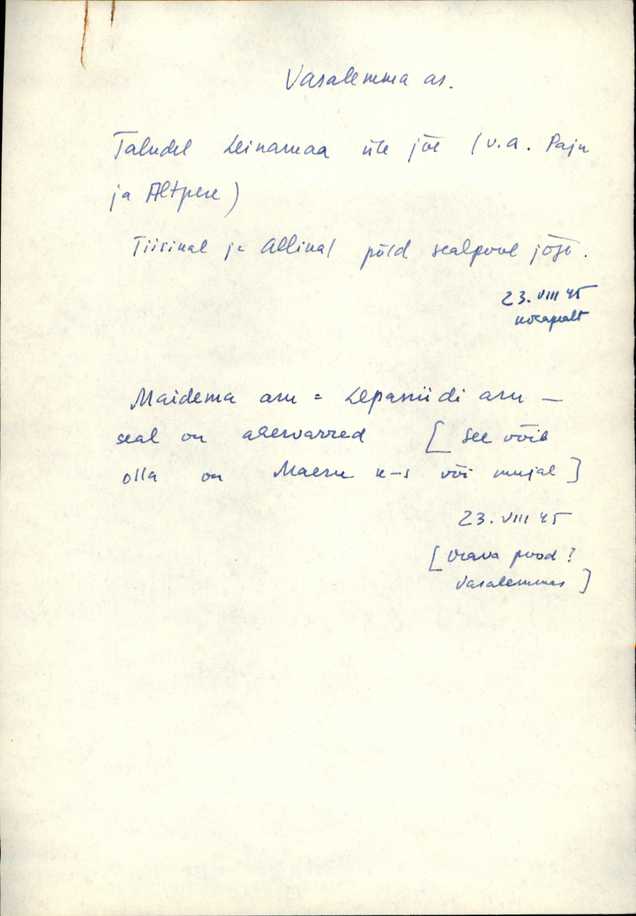 Vasalemma as.
Taludel heinamaa üle jõe (v.a. Paju
ja Altpere)
Tiisinal ja Allinal põld sealpool jõge.
23. VIII 45
Maidema aru = Lepaniidi aru –
seal on ahervarred [See võib
olla on Maeru k-s või mujal]
23. VIII 45
[Orava pood?
Vasalemmas]